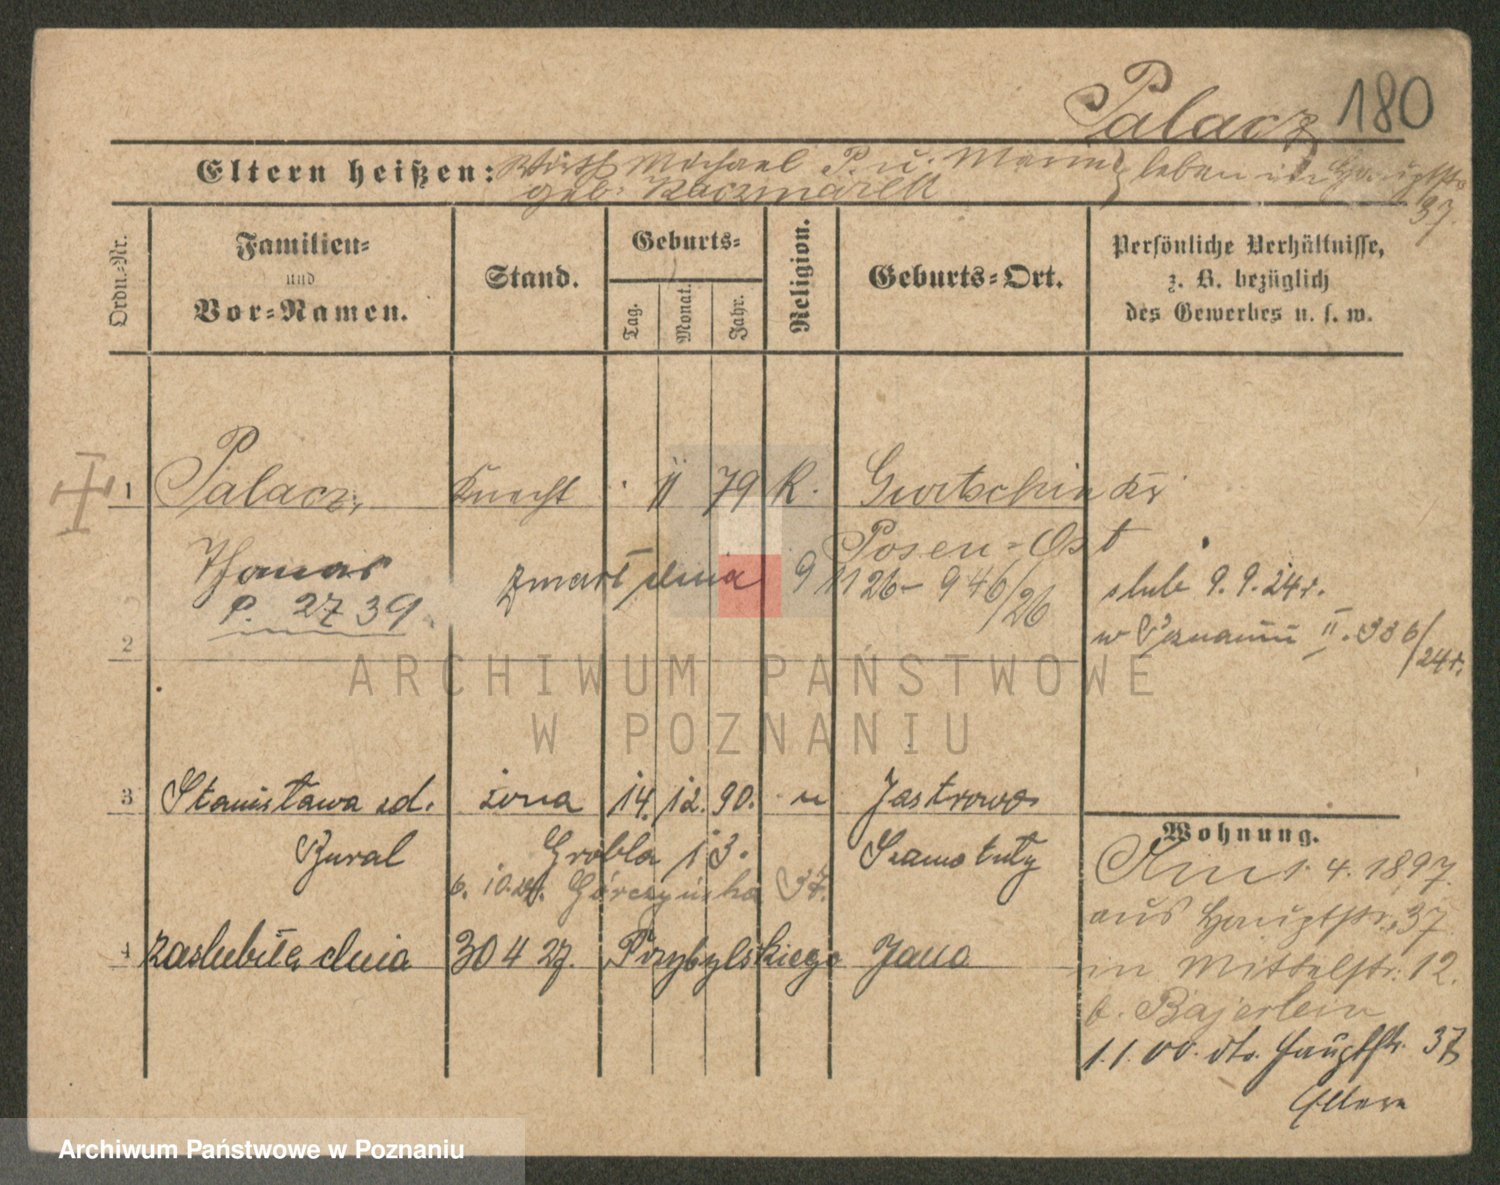 Palacz 180
Eltern heißen: Wirth Michael P. u. Marie leben in Hauptstr
geb. Kaczmarek 37.
Ordn.-Nr.
Familien-
und
Vor-Namen.
Stand.
Geburts-
Tag.
Monat.
Jahr.
Religion.
Geburts-Ort.
Persönliche Verhältnisse,
z. B. bezüglich
des Gewerbes u. s. w.
1 Palacz, Knecht 11 79 K. Gurtschin Kr
Posen-Ost
Thomas zmarł dnia 9 11 26 - 946/26
P. 2739.
ślub 9.9.24r.
w Poznaniu II. 336/24r.
2
ARCHIWUM PAŃSTWOWE
W POZNANIU
3 Stanisława zd. żona 14. 12. 90. " Jastrowo
Bural Grobla 13. Szamotuły
6.10.24. Górczyńska 37.
4 zaślubiła dnia 30 4 27. Przybylskiego Jana
Wohnung.
Am 1.4.1897.
aus Hauptstr. 37
in Mittelstr. 12.
b. Bajerlein
1.1.00. dto. Hauptstr. 37
Eltern
Archiwum Państwowe w Poznaniu